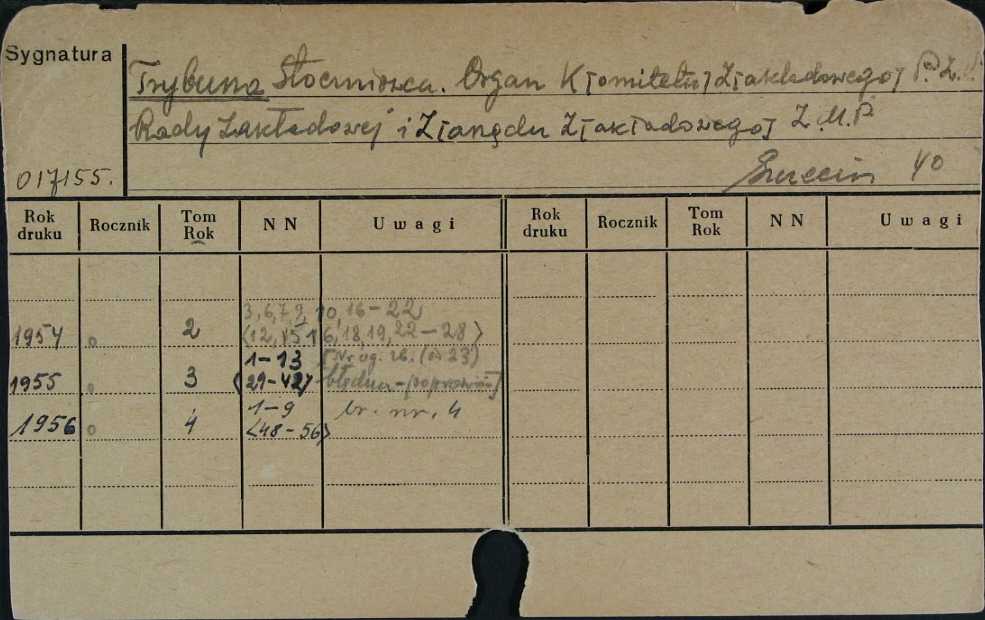 Sygnatura
Trybuna Stoczniowca. Organ K[omitetu] Z[akładowego] P.Z.P.
Rady Zakładowej i Z[arządu Z[akładowego] Z.M.P.
017155.
Szczecin 40
Rok druku Rocznik Tom Rok NN Uwagi Rok druku Rocznik Tom Rok NN Uwagi
3, 6, 7, 9, 10, 16-22
1954 o 2 <12, 15, 16, 18, 19, 22-28>
1-13 [Nr og. zb. (od 23)
1955 o 3 <29-42> błędna - poprawiona]
1-9 br. nr. 4
1956 o 4 <48-56>